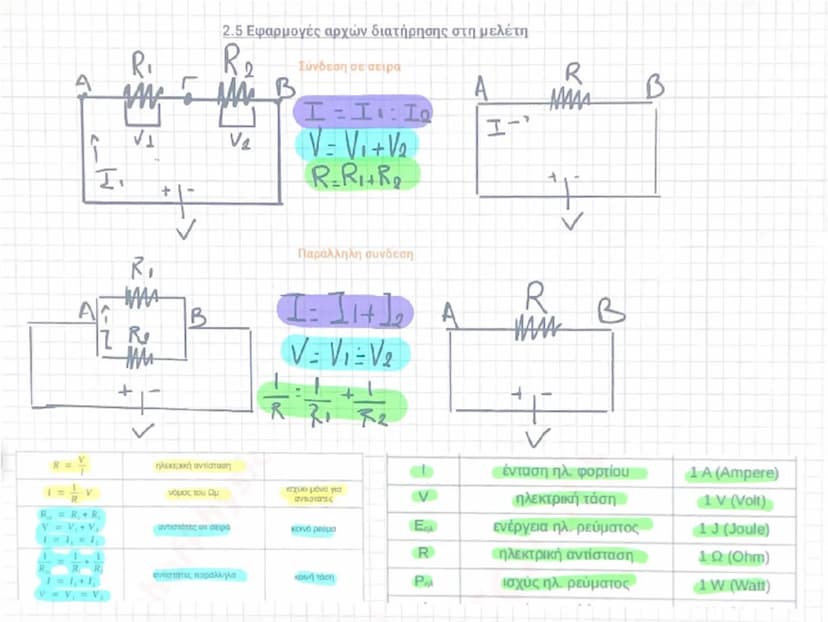 2.5 Εφαρμογές αρχών διατήρησης στη μελέτη
Σύνδεση σε σειρα
A R₁ Γ R₂ B
V1 V2
I₁
+ -
V
I = I₁ = I₂
V = V₁ + V₂
R = R₁ + R₂
A R B
I →
+ -
V
Παράλληλη συνδεση
R₁
A B
I R₂
+ -
V
I = I₁ + I₂
V = V₁ = V₂
1/R = 1/R₁ + 1/R₂
A R B
+ -
V
R = V/I ηλεκτρική αντίσταση
I = 1/R V νόμος του Ωμ ισχύει μόνο για αντιστάτες
R = R₁ + R₂
V = V₁ + V₂ αντιστάτες σε σειρά κοινό ρεύμα
I = I₁ = I₂
1/R = 1/R₁ + 1/R₂
I = I₁ + I₂ αντιστάτες παράλληλα κοινή τάση
V = V₁ = V₂
I ένταση ηλ. φορτίου 1 A (Ampere)
V ηλεκτρική τάση 1 V (Volt)
Eηλ ενέργεια ηλ. ρεύματος 1 J (Joule)
R ηλεκτρική αντίσταση 1 Ω (Ohm)
Pηλ ισχύς ηλ. ρεύματος 1 W (Watt)